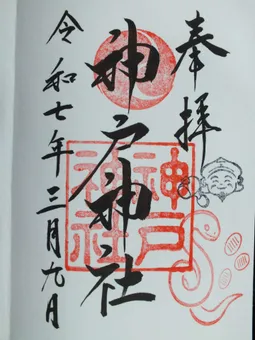 奉拝
神戸神社
神戸
神社
令和七年三月九日